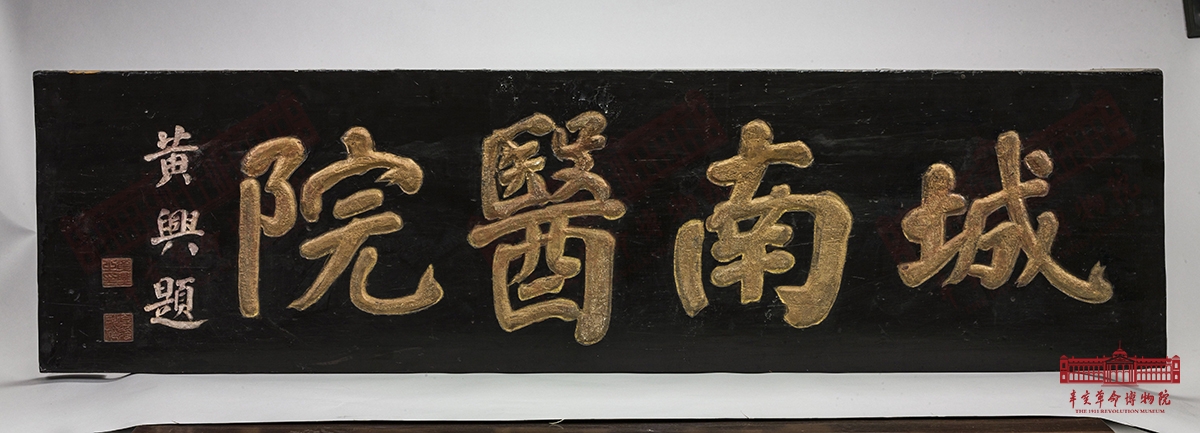 城南醫院
黃興題
辛亥革命博物院
THE 1911 REVOLUTION MUSEUM